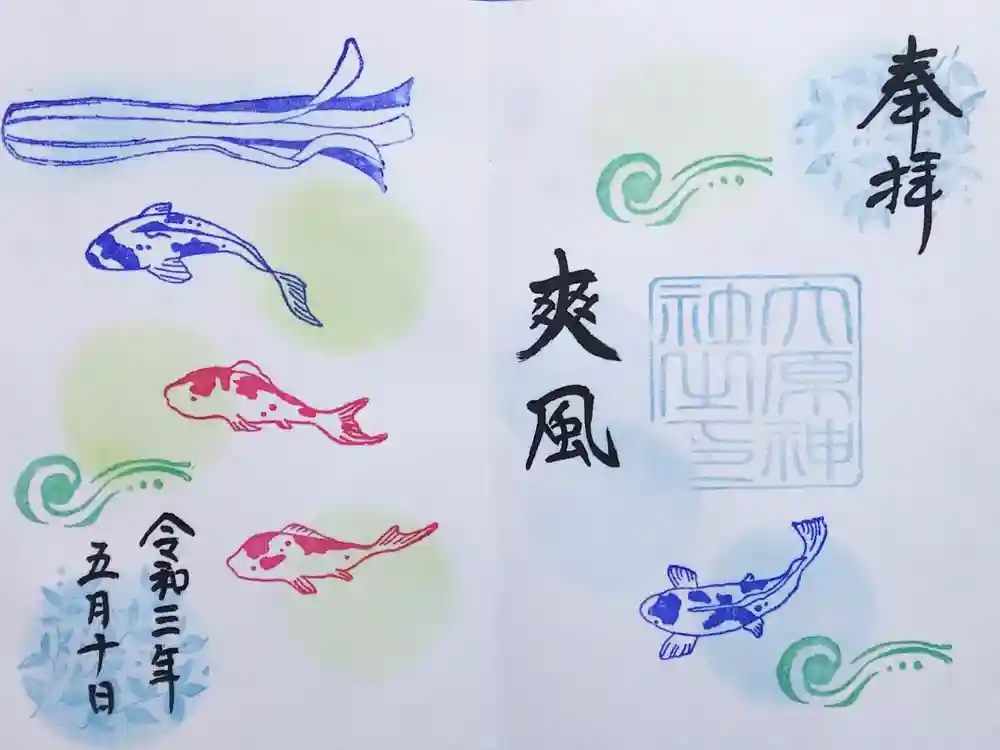 奉拝
大原神
社之印
爽風
令和三年
五月十日